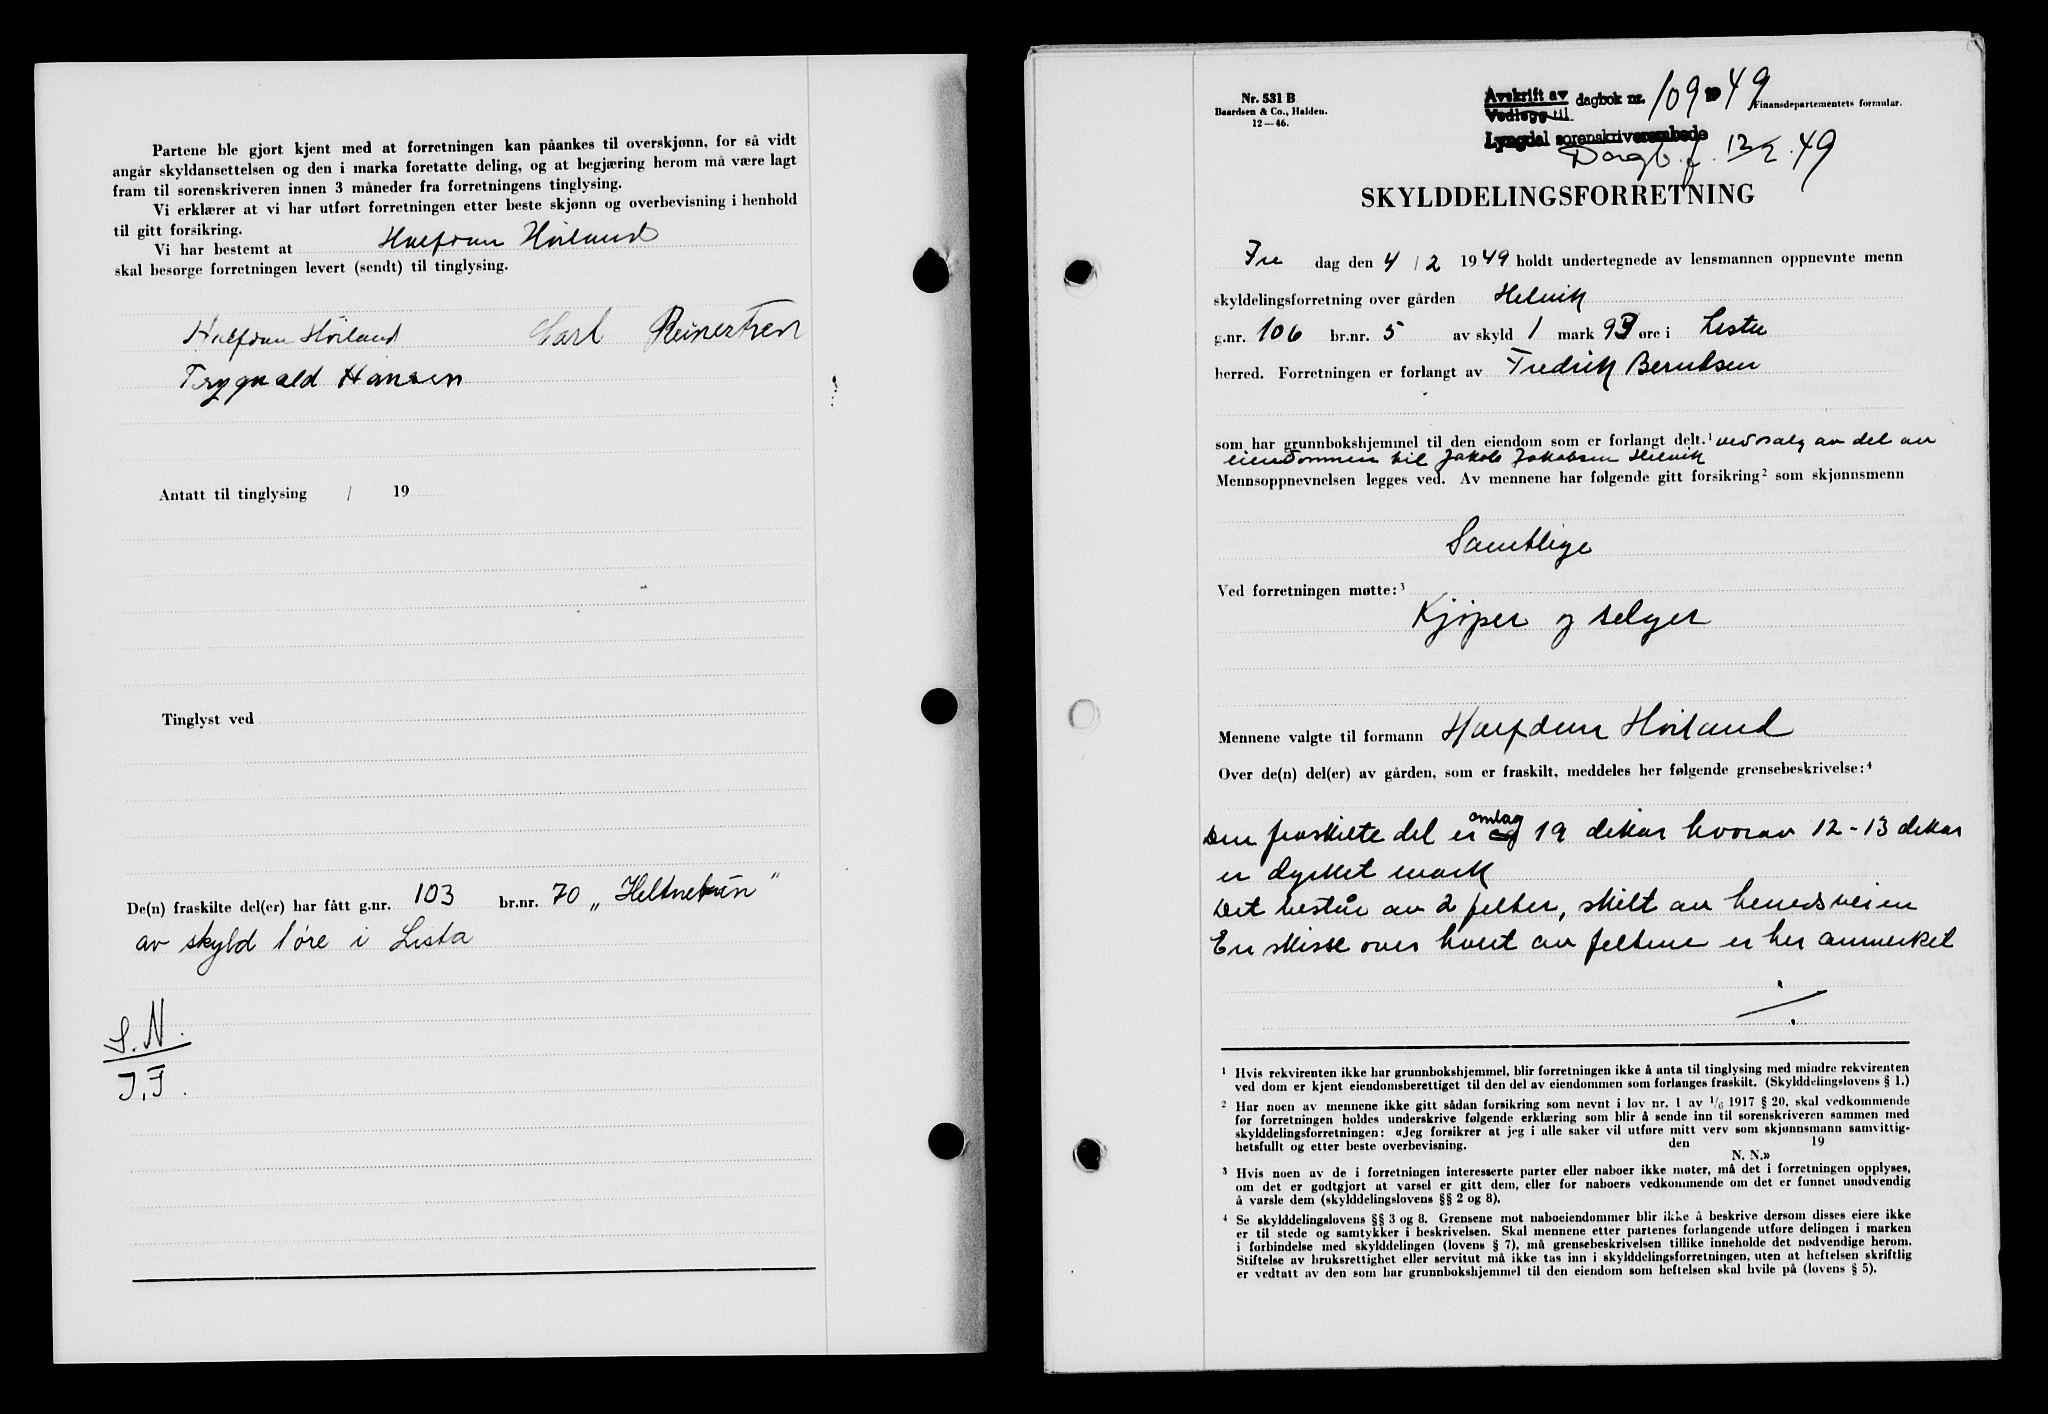 Partene ble gjort kjent med at forretningen kan påankes til overskjønn, for så vidt
angår skyldansettelsen og den i marka foretatte deling, og at begjæring herom må være lagt
fram til sorenskriveren innen 3 måneder fra forretningens tinglysing.
Vi erklærer at vi har utført forretningen etter beste skjønn og overbevisning i henhold
til gitt forsikring.
Vi har bestemt at Halfdan Høiland
skal besørge forretningen levert (sendt) til tinglysing.
Halfdan Høiland Carl Reinertsen
Trygvald Hansen
Antatt til tinglysing / 19
Tinglyst ved
De(n) fraskilte del(er) har fått g.nr. 103 br.nr. 70 „Heltnetun"
av skyld 1 øre i Lista
S.N.
J.F.
Nr. 531 B
Baardsen & Co., Halden.
12—46.
Avskrift av
Vedlegg til dagbok nr. 109 1949
Finansdepartementets formular.
Lyngdal sorenskriverembede
Dagb.f. 12/2.49
SKYLDDELINGSFORRETNING
Fre dag den 4 / 2 1949 holdt undertegnede av lensmannen oppnevnte menn
skyldelingsforretning over gården Helvik
g.nr. 106 br.nr. 5 av skyld 1 mark 93 øre i Lista
herred. Forretningen er forlangt av Fredrik Berntsen
som har grunnbokshjemmel til den eiendom som er forlangt delt.¹ ved salg av del av
eiendommen til Jakob Jakobsen Helvik
Mennsoppnevnelsen legges ved. Av mennene har følgende gitt forsikring² som skjønnsmenn
Samtlige
Ved forretningen møtte:³
Kjøper og selger
Mennene valgte til formann Halfdan Høiland
Over de(n) del(er) av gården, som er fraskilt, meddeles her følgende grensebeskrivelse:⁴
Den fraskilte del er omlag 19 dekar hvorav 12-13 dekar
er dyrket mark
Det består av 2 felter, skilt av herredsveien
En skisse over hvert av feltene er her anmerket
./.
¹ Hvis rekvirenten ikke har grunnbokshjemmel, blir forretningen ikke å anta til tinglysing med mindre rekvirenten
ved dom er kjent eiendomsberettiget til den del av eiendommen som forlanges fraskilt. (Skylddelingslovens § 1.)
² Har noen av mennene ikke gitt sådan forsikring som nevnt i lov nr. 1 av 1/6 1917 § 20, skal vedkommende
før forretningen holdes underskrive følgende erklæring som blir å sende inn til sorenskriveren sammen med
skylddelingsforretningen: «Jeg forsikrer at jeg i alle saker vil utføre mitt verv som skjønnsmann samvittig-
hetsfullt og etter beste overbevisning. den 19
N. N.»
³ Hvis noen av de i forretningen interesserte parter eller naboer ikke møter, må det i forretningen opplyses,
om det er godtgjort at varsel er gitt dem, eller for naboers vedkommende om det er funnet unødvendig
å varsle dem (skylddelingslovens §§ 2 og 8).
⁴ Se skylddelingslovens §§ 3 og 8. Grensene mot naboeiendommer blir ikke å beskrive dersom disses eiere ikke
er til stede og samtykker i beskrivelsen. Skal mennene etter partenes forlangende utføre delingen i marken
i forbindelse med skylddelingen (lovens § 7), må grensebeskrivelsen tillike inneholde det nødvendige herom.
Stiftelse av bruksrettighet eller servitut må ikke tas inn i skylddelingsforretningen, uten at heftelsen skriftlig
er vedtatt av den som har grunnbokshjemmel til den eiendom som heftelsen skal hvile på (lovens § 5).